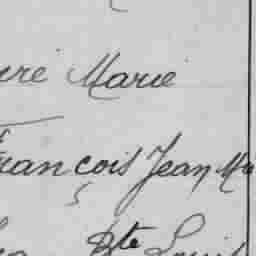 Marie
François Jean Ma
Bte Louis